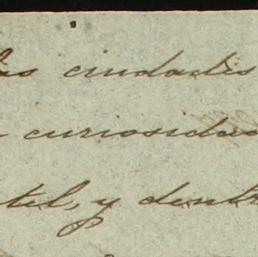 las ciudades
curiosidad
tel, y dentr